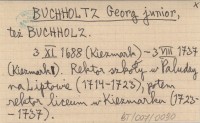 BUCHHOLTZ Georg junior,
też BUCHHOLZ.
3 XI 1688 (Kiezmark) – 3 VIII 1737
(Kiezmark). Rektor szkoły w Paludzy
na Liptowie (1714-1723), potem
rektor liceum w Kieżmarku (1723-
-1737).
BT/007/0030